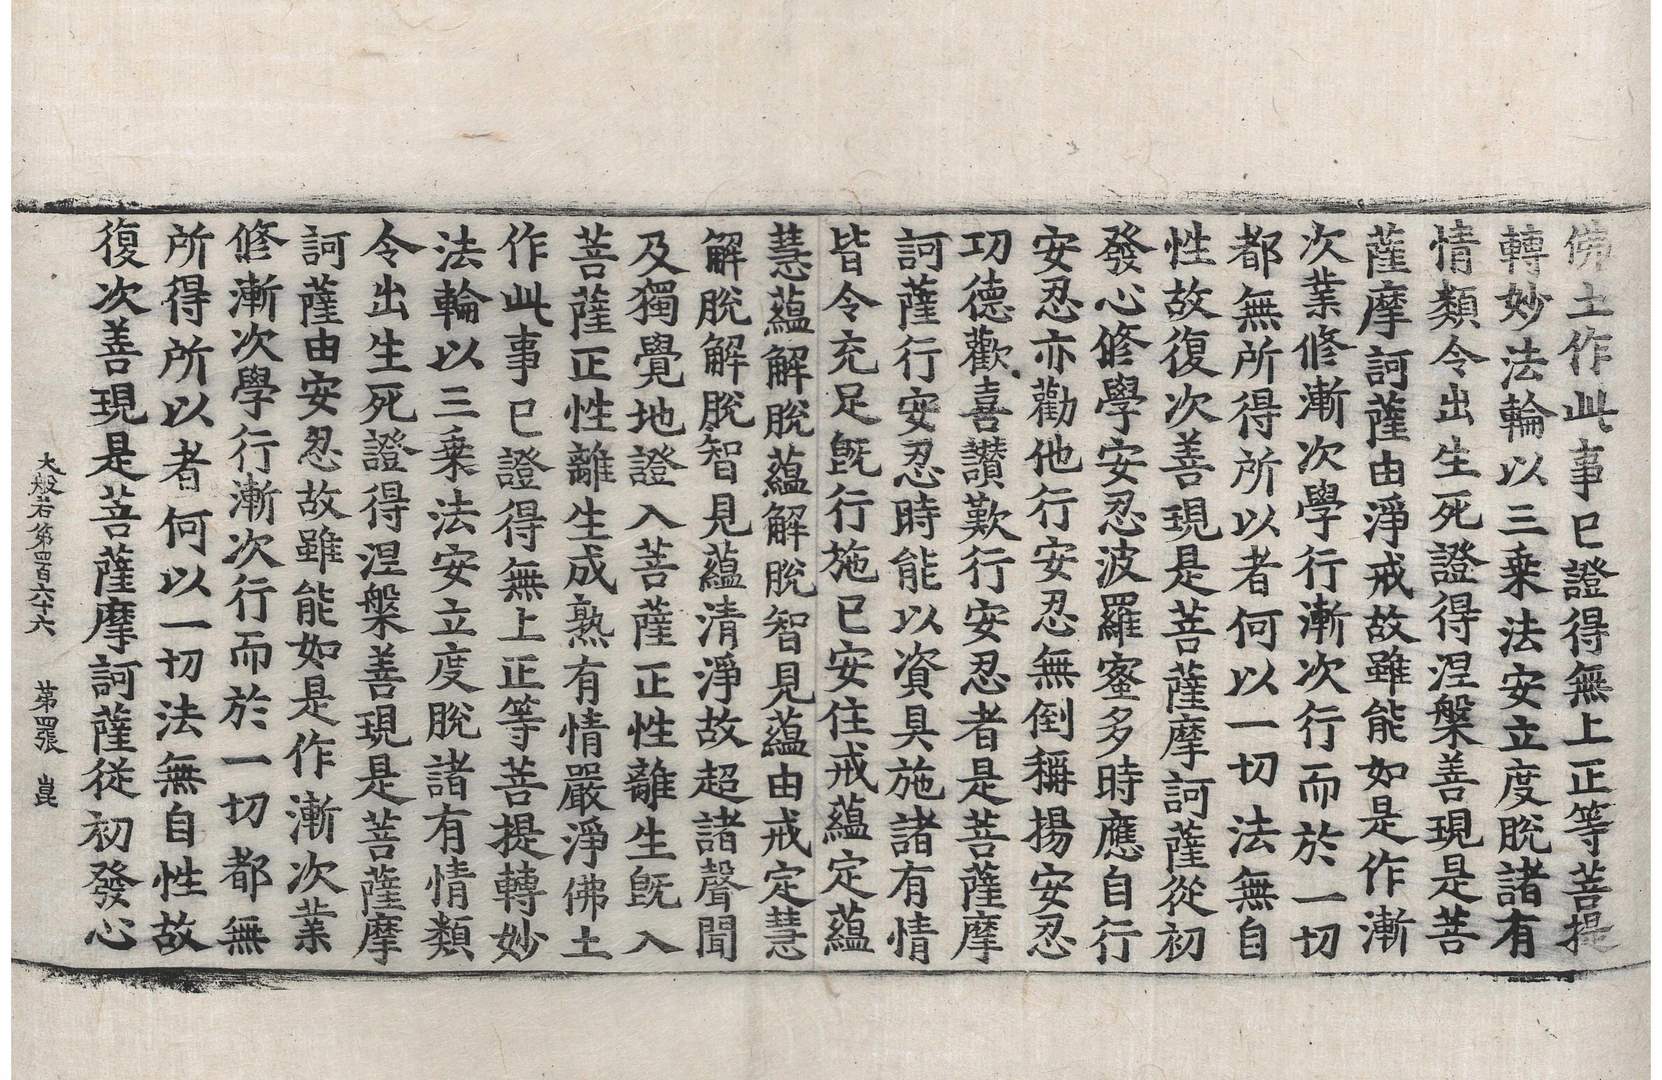 佛土作此事已證得無上正等菩提
轉妙法輪以三乗法安立度脫諸有
情類令出生死證得涅槃善現是菩
薩摩訶薩由淨戒故雖能如是作漸
次業修漸次學行漸次行而於一切
都無所得所以者何以一切法無自
性故復次善現是菩薩摩訶薩從初
發心修學安忍波羅蜜多時應自行
安忍亦勸他行安忍無倒稱揚安忍
功德歡喜讃歎行安忍者是菩薩摩
訶薩行安忍時能以資具施諸有情
皆令充足旣行施已安住戒蘊定蘊
慧蘊解脫蘊解脫智見蘊由戒定慧
解脫解脫智見蘊清淨故超諸聲聞
及獨覺地證入菩薩正性離生旣入
菩薩正性離生成熟有情嚴淨佛土
作此事已證得無上正等菩提轉妙
法輪以三乗法安立度脫諸有情類
令出生死證得涅槃善現是菩薩摩
訶薩由安忍故雖能如是作漸次業
修漸次學行漸次行而於一切都無
所得所以者何以一切法無自性故
復次善現是菩薩摩訶薩從初發心
大般若第四百六十六　第四張　崑